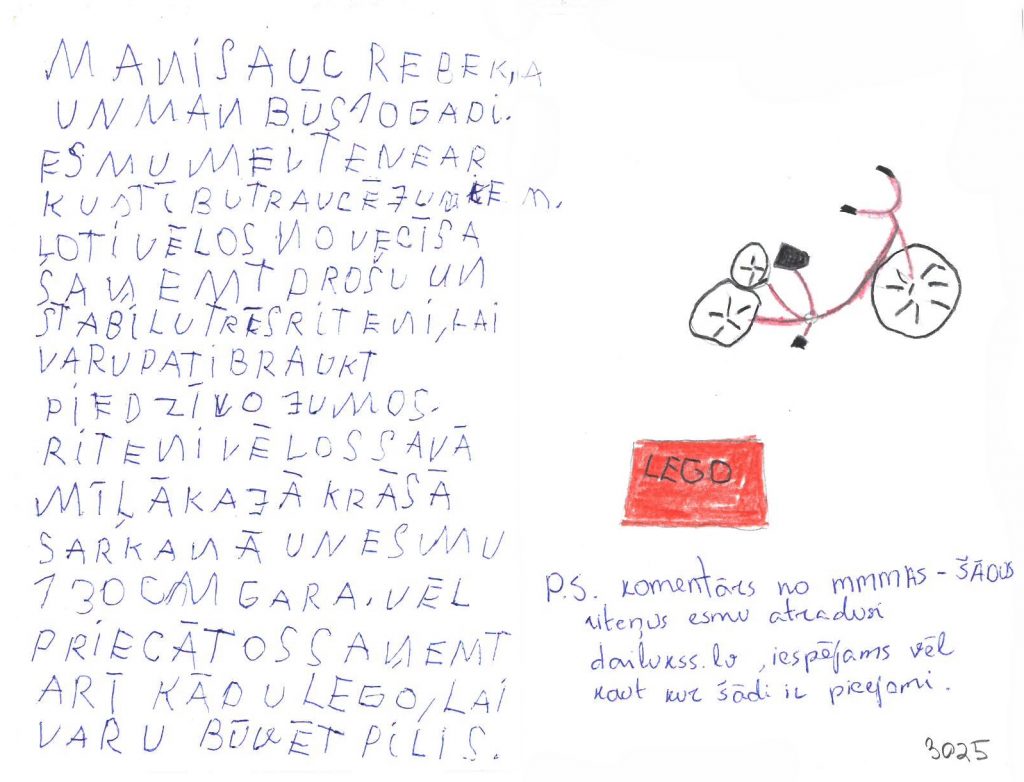 MANI SAUC REBEKA
UN MAN BŪS 10 GADI.
ESMU MEITENE AR
KUSTĪBU TRAUCĒJUMIEM.
ĻOTI VĒLOS NO VECĪŠA
ŠAŅEMT DROŠU UN
STABILU TRĒSRITENI, LAI
VARU PATI BRAUKT
PIEDZĪVOJUMOS.
RITENI VĒLOS SAVĀ
MĪĻĀKAJĀ KRĀSĀ
SARKANĀ UN ESMU
130 CM GARA. VĒL
PRIECĀTOS SAŅEMT
ARĪ KĀDU LEGO, LAI
VARU BŪVĒT PILIS.
LEGO
P.S. komentārs no MMMAS - ŠĀDUS
riteņus esmu atradusi
dailukss.lv, iespējams vēl
kaut kur šādi ir pieejami.
3025